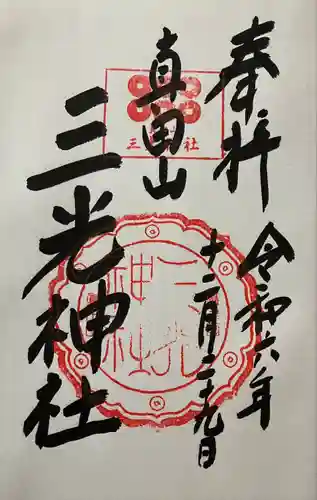 奉拝
令和六年
十二月二十九日
真田山
三光神社
三光神社
三光神社